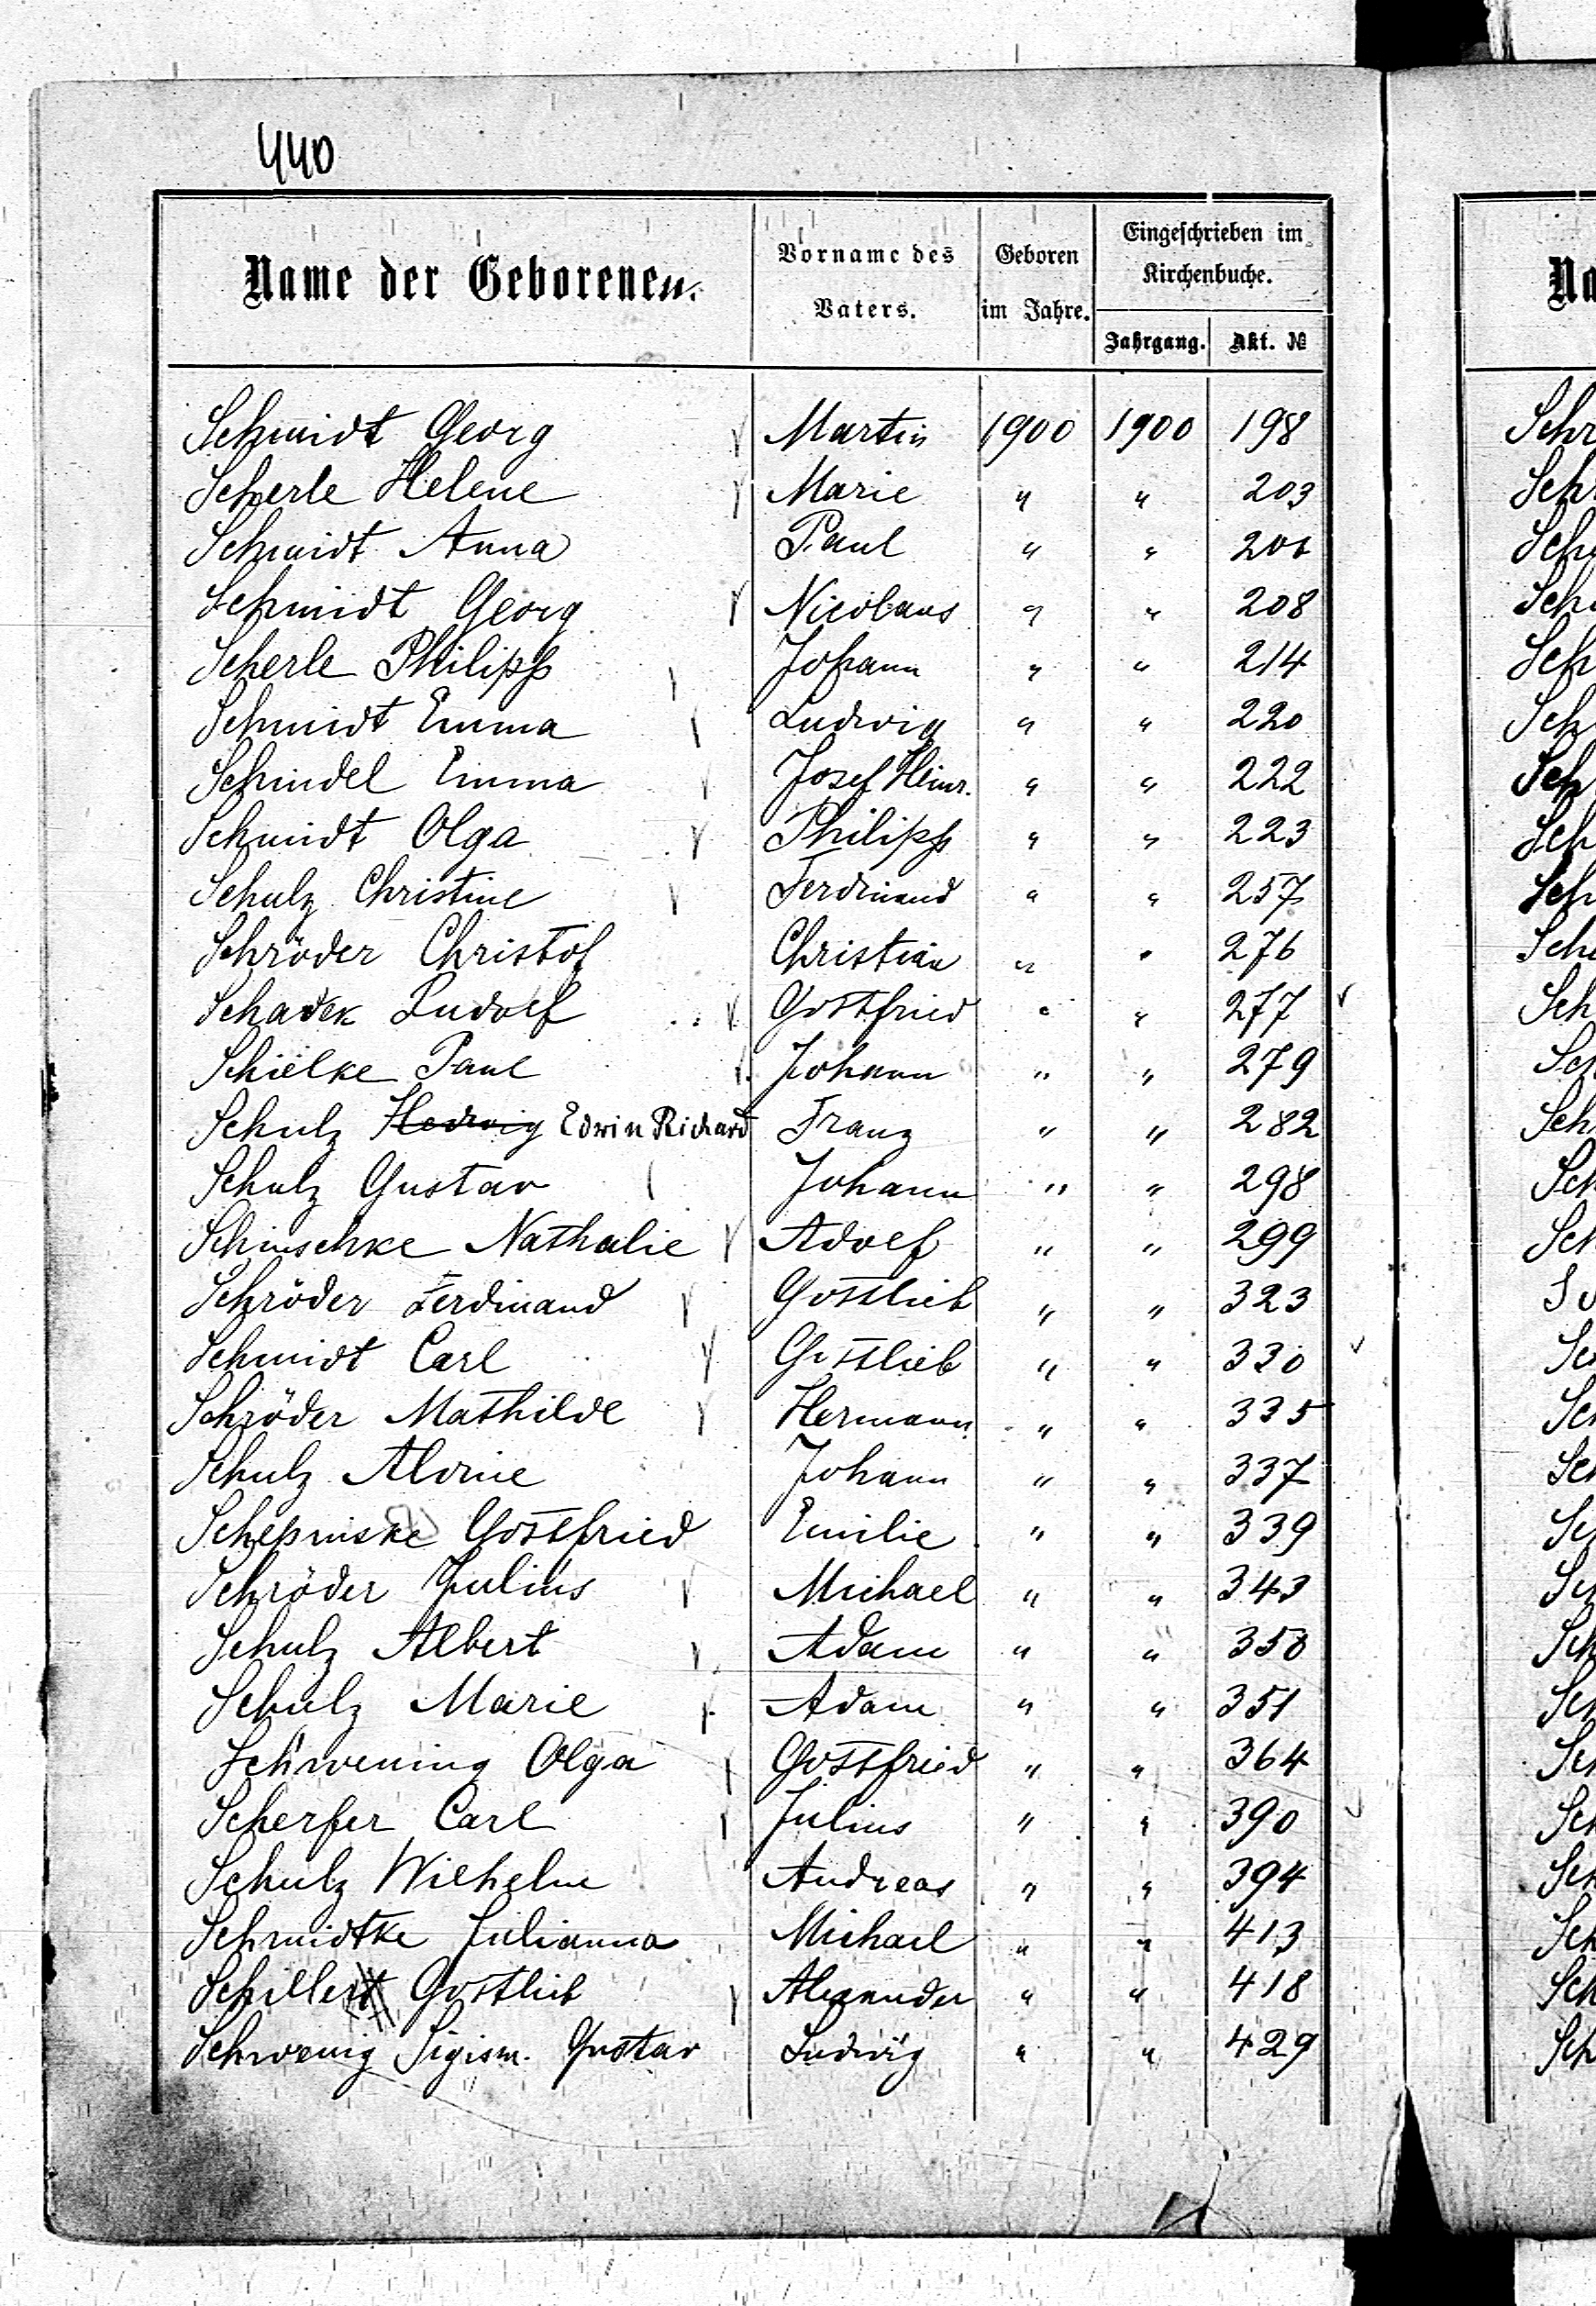 440
Name der Geborenen.
Vorname des Vaters.
Geboren im Jahre.
Eingeschrieben im Kirchenbuche.
Jahrgang. Akt. №
Schmidt Georg Martin 1900 1900 198
Scherle Helene Marie " " 203
Schmidt Anna Paul " " 206
Schmidt Georg Nicolaus " " 208
Scherle Philipp Johann " " 214
Schmidt Emma Ludwig " " 220
Schindel Emma Josef Heinr. " " 222
Schmidt Olga Philipp " " 223
Schulz Christine Ferdinand " " 257
Schröder Christof Christian " " 276
Schadek Rudolf Gottfried " " 277
Schielke Paul Johann " " 279
Schulz Hedwig Edwin Richard Franz " " 282
Schulz Gustav Johann " " 298
Schinschke Nathalie Adolf " " 299
Schröder Ferdinand Gottlieb " " 323
Schmidt Carl Gottlieb " " 330
Schröder Mathilde Hermann " " 335
Schulz Alvine Johann " " 337
Gottfried Emilie " " 339
Schröder Julius Michael " " 343
Schulz Albert Adam " " 350
Schulz Marie Adam " " 351
Schwening Olga Gottfried " " 364
Scherfer Carl Julius " " 390
Schulz Wilhelm Andreas " " 394
Schmidtke Julianna Michael " " 413
Schiller Gottlieb Alexander " " 418
Schwenig Sigism. Gustav Ludwig " " 429